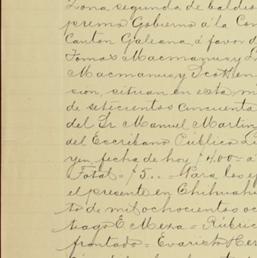 Zona segunda de baldi
premo Gobierno á la Com
Canton Galeana á favor d
Tomas Macmanus y L
Macmanus y Scottens
sion, situan en esta mi
de setecientos cincuenta
del Sr Manuel Martin
del Escribano Publico Li
yen fecha de hoy 1400 á
Total = $5.. = Para los ef
el presente en Chihuahu
to de mil ochocientos oc
tiago E Mesa = Rubric
frontado = Evaristo Her